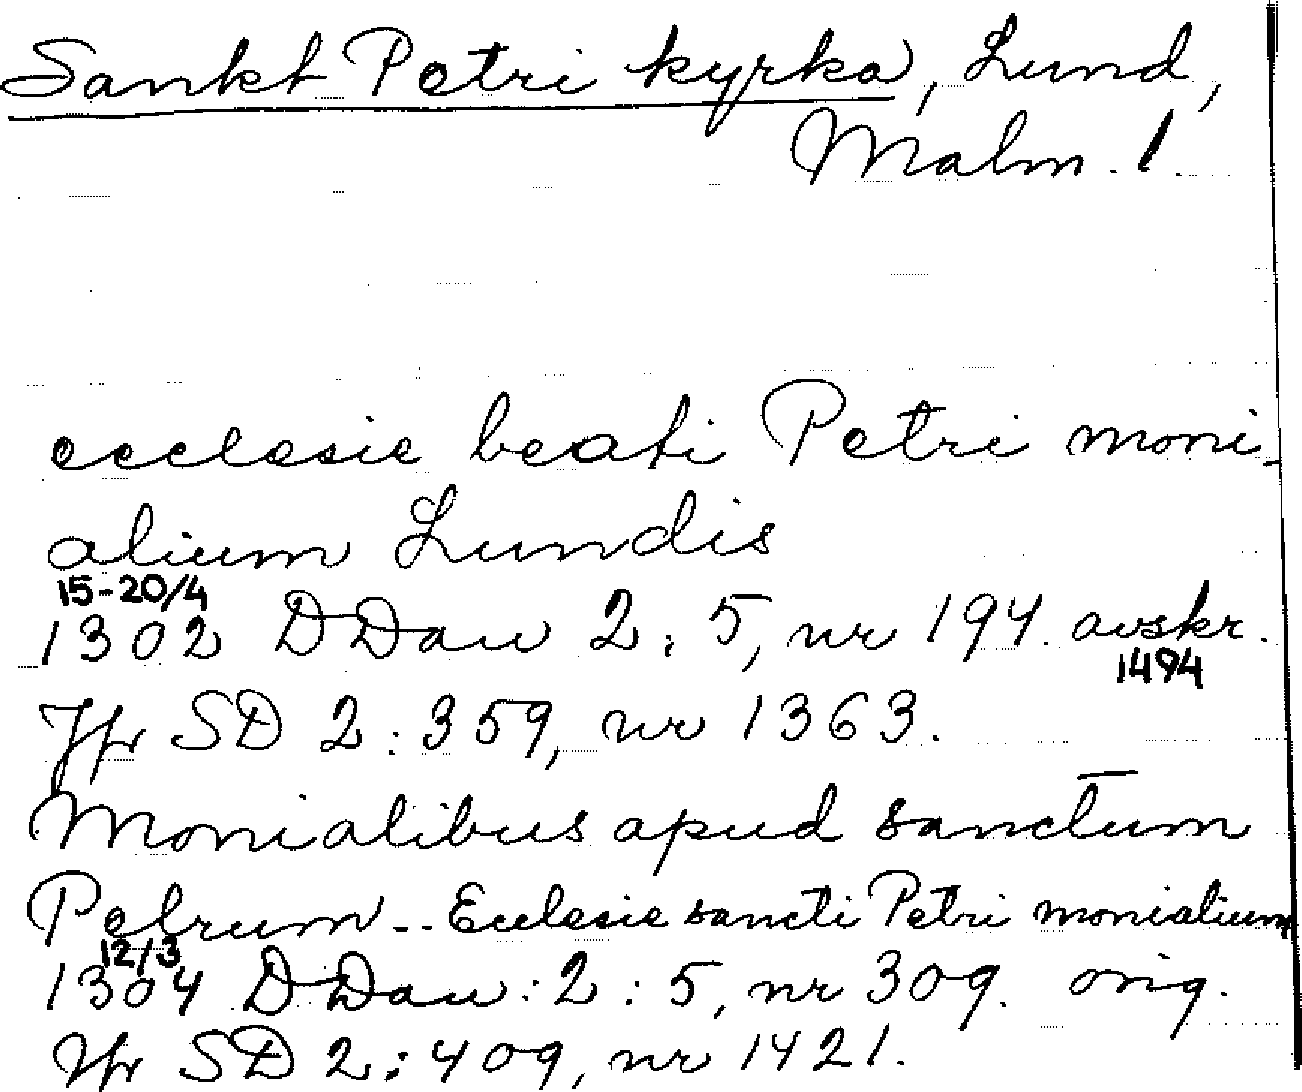 Sankt Petri kyrka, Lund,
Malm. 1.
ecclesie beati Petri moni-
alium Lundis
15-20/4
1302 DDan 2:5, nr 194. avskr.
1494
Jfr SD 2:359, nr 1363.
Monialibus apud sanctum
Petrum -- Ecclesie sancti Petri monialium
12/3
1304 DDan: 2:5, nr 309. orig.
Jfr SD 2:409, nr 1421.